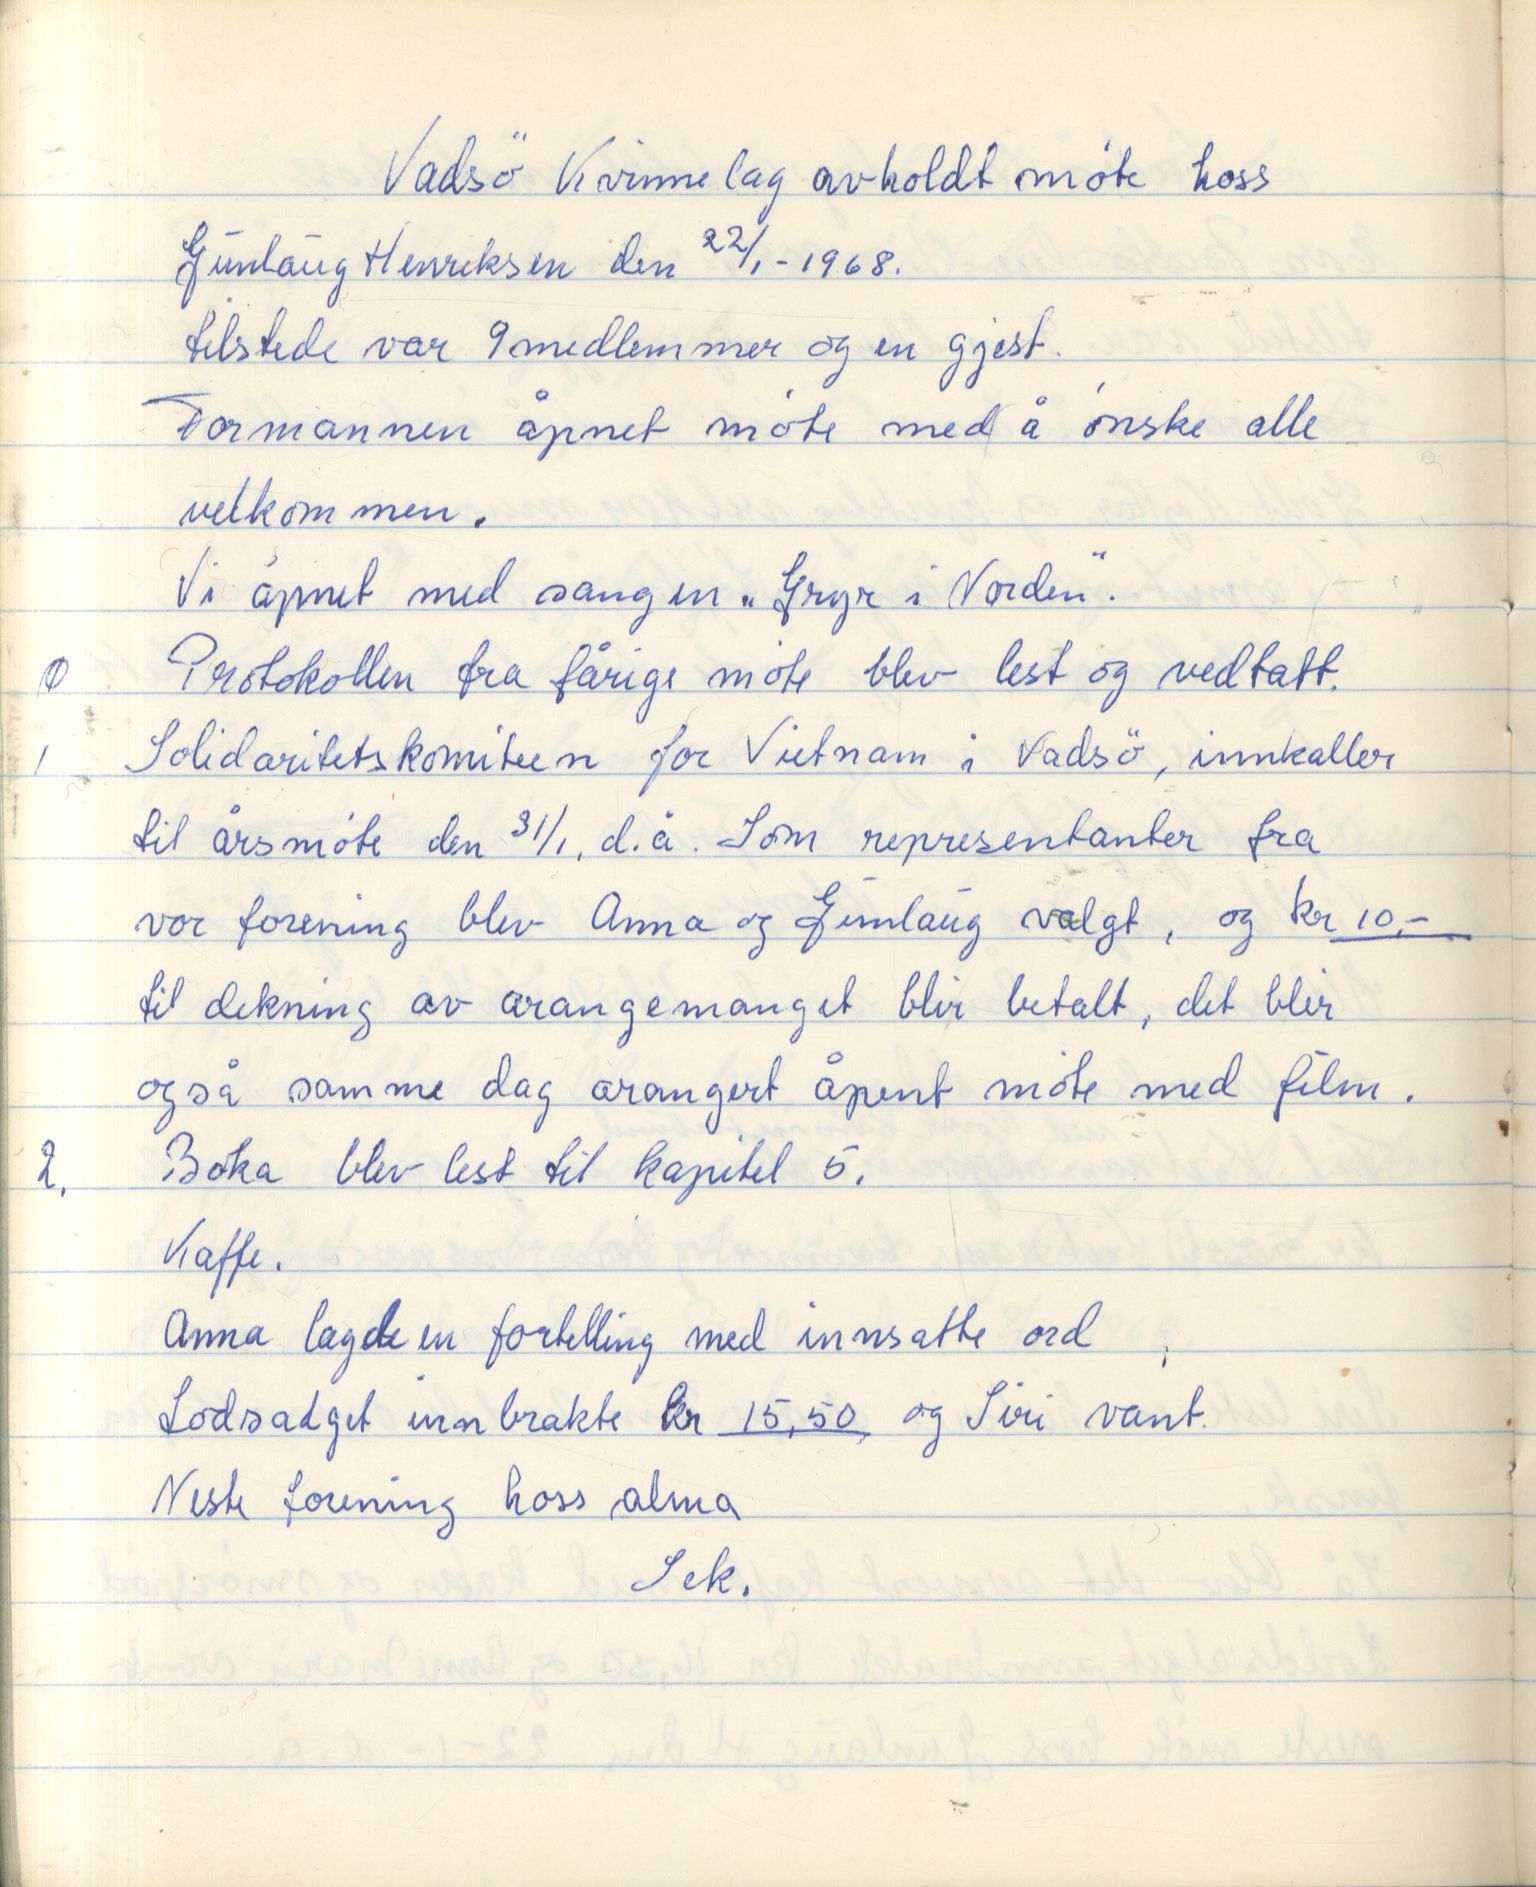 Vadsö Kvinnelag avholdt móte hoss
Gunlaug Henriksen den 22/1 - 1968.
tilstede var 9 medlemmer og en gjest.
Formannen åpnet móte med å ónske alle
velkommen.
Vi åpnet med sangen „Gryr i Norden".
0 Protokollen fra fårige móte blev lest og vedtatt.
1 Solidaritetskomiteen for Vietnam i Vadsö, innkaller
til årsmóte den 31/1, d.å. Som representanter fra
vor forening blev Anna og Gunlaug valgt, og kr 10,-
til dekning av arangemanget blir betalt, det blir
også samme dag arangert åpent móte med film.
2. Boka blev lest til kapitel 5.
Kaffe.
Anna lagde en fortelling med innsatte ord,
Lodsalget innbrakte kr 15,50 og Siri vant.
Neste forening hoss alma
Sek.